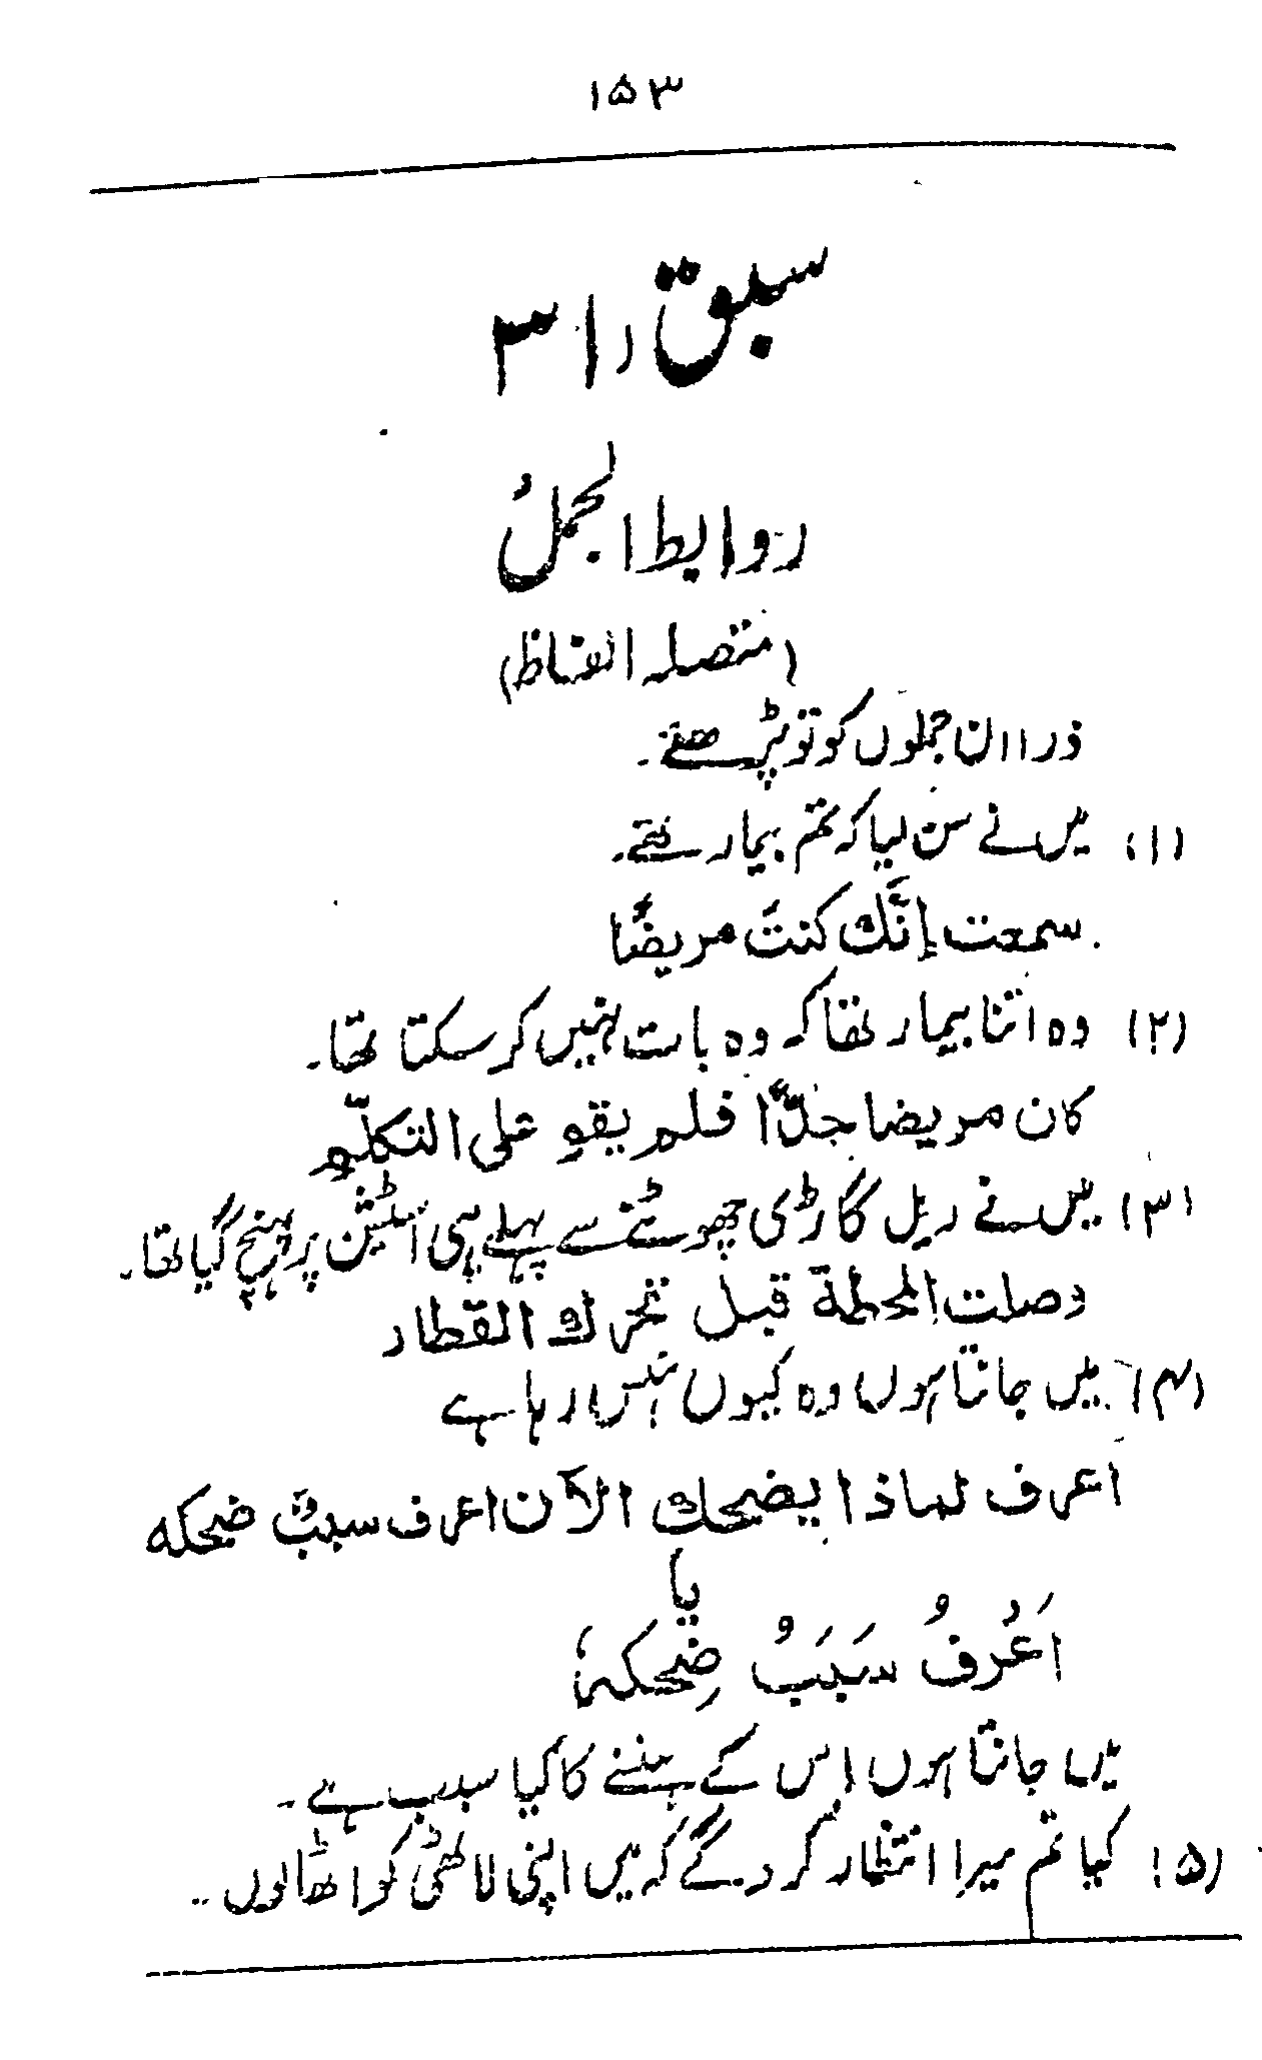 ۱۵۳
سبق ۳۱
روابط الجملُ
(متصلہ الفاظ)
ذرا ان جملوں کو تو پڑھئے۔
(۱) میں نے سن لیا کہ تم بیمار تھے۔
سمعت إنَّك كنتَ مريضًا
(۲) وہ اتنا بیمار تھا کہ وہ بات نہیں کر سکتا تھا۔
كان مريضا جدًّا فلم يقو على التكلّم
(۳) میں نے ریل گاڑی چھوٹنے سے پہلے ہی اسٹیشن پر پہنچ گیا تھا۔
وصلت المحطة قبل تحرك القطار
(۴) میں جانتا ہوں وہ کیوں ہنس رہا ہے
اعرف لماذا يضحك الآن اعرف سببَ ضحكه
یا
اَعْرِفُ سَبَبُ ضِحكهٗ
میں جانتا ہوں اس کے ہنسنے کا کیا سبب ہے۔
(۵) کیا تم میرا انتظار کروگے کہ میں اپنی لاٹھی کو اٹھا لوں۔